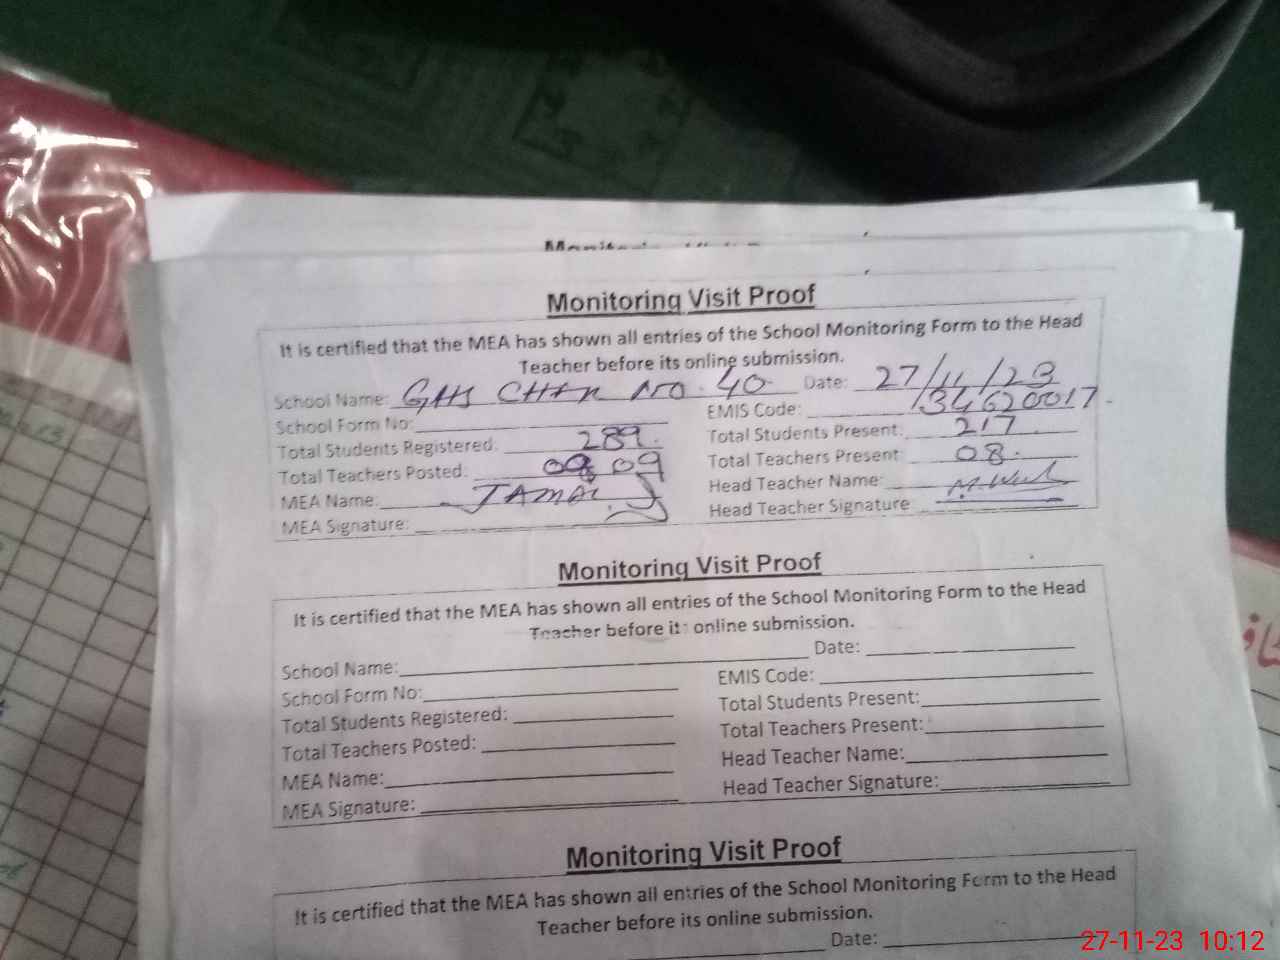 Monitoring Visit Proof
It is certified that the MEA has shown all entries of the School Monitoring Form to the Head
Teacher before its online submission.
School Name: GHS CHAK NO. 40 Date: 27/11/23
School Form No: EMIS Code: 34620017
Total Students Registered: 289. Total Students Present: 217
Total Teachers Posted: 09 Total Teachers Present 08.
MEA Name: JAMAL Head Teacher Name:
MEA Signature: Head Teacher Signature
Monitoring Visit Proof
It is certified that the MEA has shown all entries of the School Monitoring Form to the Head
Teacher before its online submission.
School Name: Date:
School Form No: EMIS Code:
Total Students Registered: Total Students Present:
Total Teachers Posted: Total Teachers Present:
MEA Name: Head Teacher Name:
MEA Signature: Head Teacher Signature:
Monitoring Visit Proof
It is certified that the MEA has shown all entries of the School Monitoring Form to the Head
Teacher before its online submission.
Date:
27-11-23 10:12